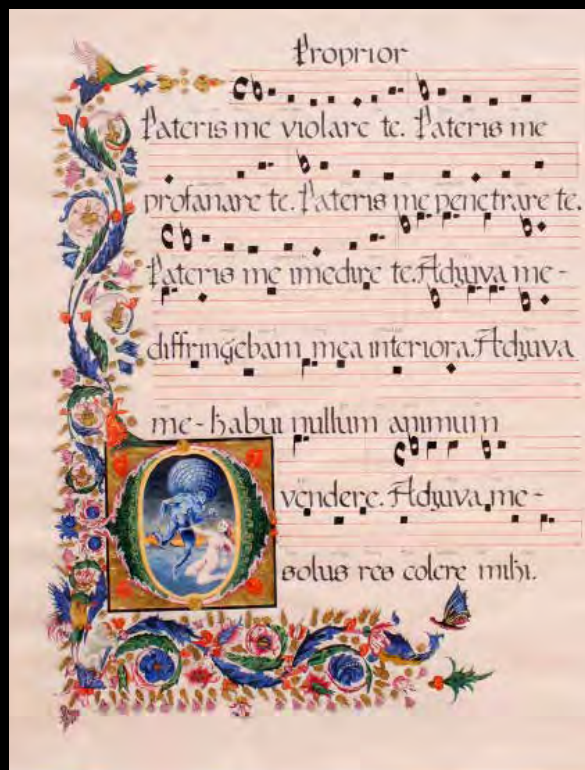 Proprior
Pateris me violare te. Pateris me
profanare te. Pateris me penetrare te.
Pateris me imedire te. Adyuva me-
diffringebam mea interiora. Adyuva
me-habui nullum animum
vendere. Adyuva me-
solus res colere mihi.